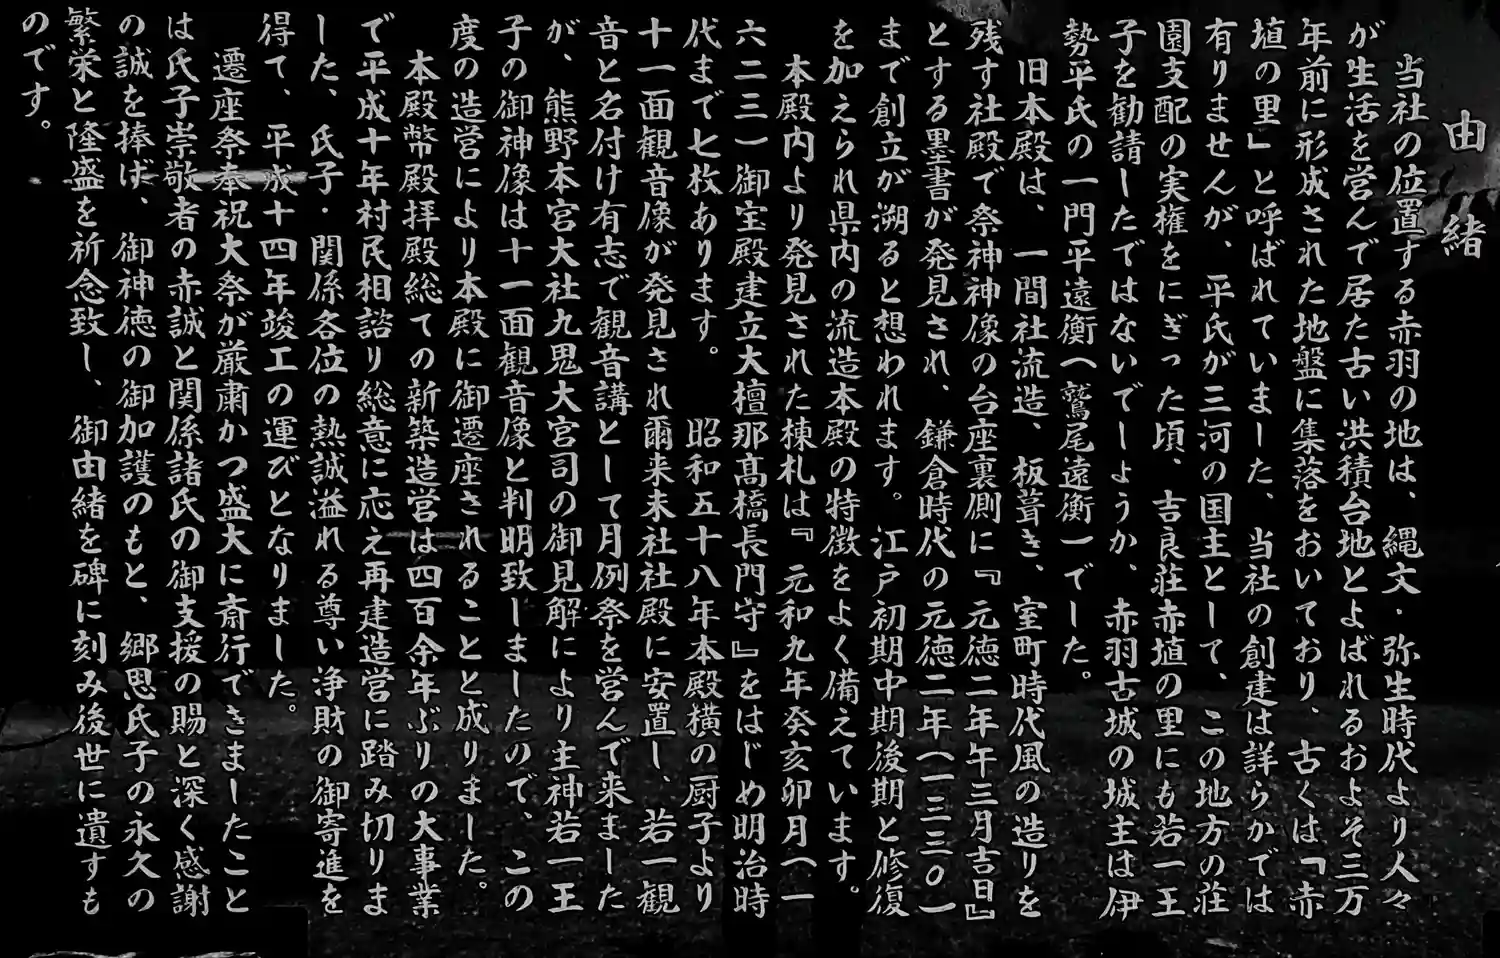 由緒
当社の位置する赤羽の地は、縄文・弥生時代より人々
が生活を営んで居た古い洪積台地とよばれるおよそ三万
年前に形成された地盤に集落をおいており、古くは「赤
埴の里」と呼ばれていました、当社の創建は詳らかでは
有りませんが、平氏が三河の国主として、この地方の荘
園支配の実権をにぎった頃、吉良荘赤埴の里にも若一王
子を勧請したではないでしょうか、赤羽古城の城主は伊
勢平氏の一門平遠衡(鷲尾遠衡)でした。
旧本殿は、一間社流造、板葺き、室町時代風の造りを
残す社殿で祭神神像の台座裏側に『元徳二年午三月吉日』
とする墨書が発見され、鎌倉時代の元徳二年(一三三〇)
まで創立が溯ると想われます。江戸初期中期後期と修復
を加えられ県内の流造本殿の特徴をよく備えています。
本殿内より発見された棟札は『元和九年癸亥卯月(一
六二三)御宝殿建立大檀那髙橋長門守』をはじめ明治時
代まで七枚あります。昭和五十八年本殿横の厨子より
十一面観音像が発見され爾来末社社殿に安置し、若一観
音と名付け有志で観音講として月例祭を営んで来ました
が、熊野本宮大社九鬼大宮司の御見解により主神若一王
子の御神像は十一面観音像と判明致しましたので、この
度の造営により本殿に御遷座されることと成りました。
本殿幣殿拝殿総ての新築造営は四百余年ぶりの大事業
で平成十年村民相諮り総意に応え再建造営に踏み切りま
した、氏子・関係各位の熱誠溢れる尊い浄財の御寄進を
得て、平成十四年竣工の運びとなりました。
遷座祭奉祝大祭が厳粛かつ盛大に斎行できましたこと
は氏子崇敬者の赤誠と関係諸氏の御支援の賜と深く感謝
の誠を捧げ、御神徳の御加護のもと、郷思氏子の永久の
繁栄と隆盛を祈念致し、御由緒を碑に刻み後世に遺すも
のです。